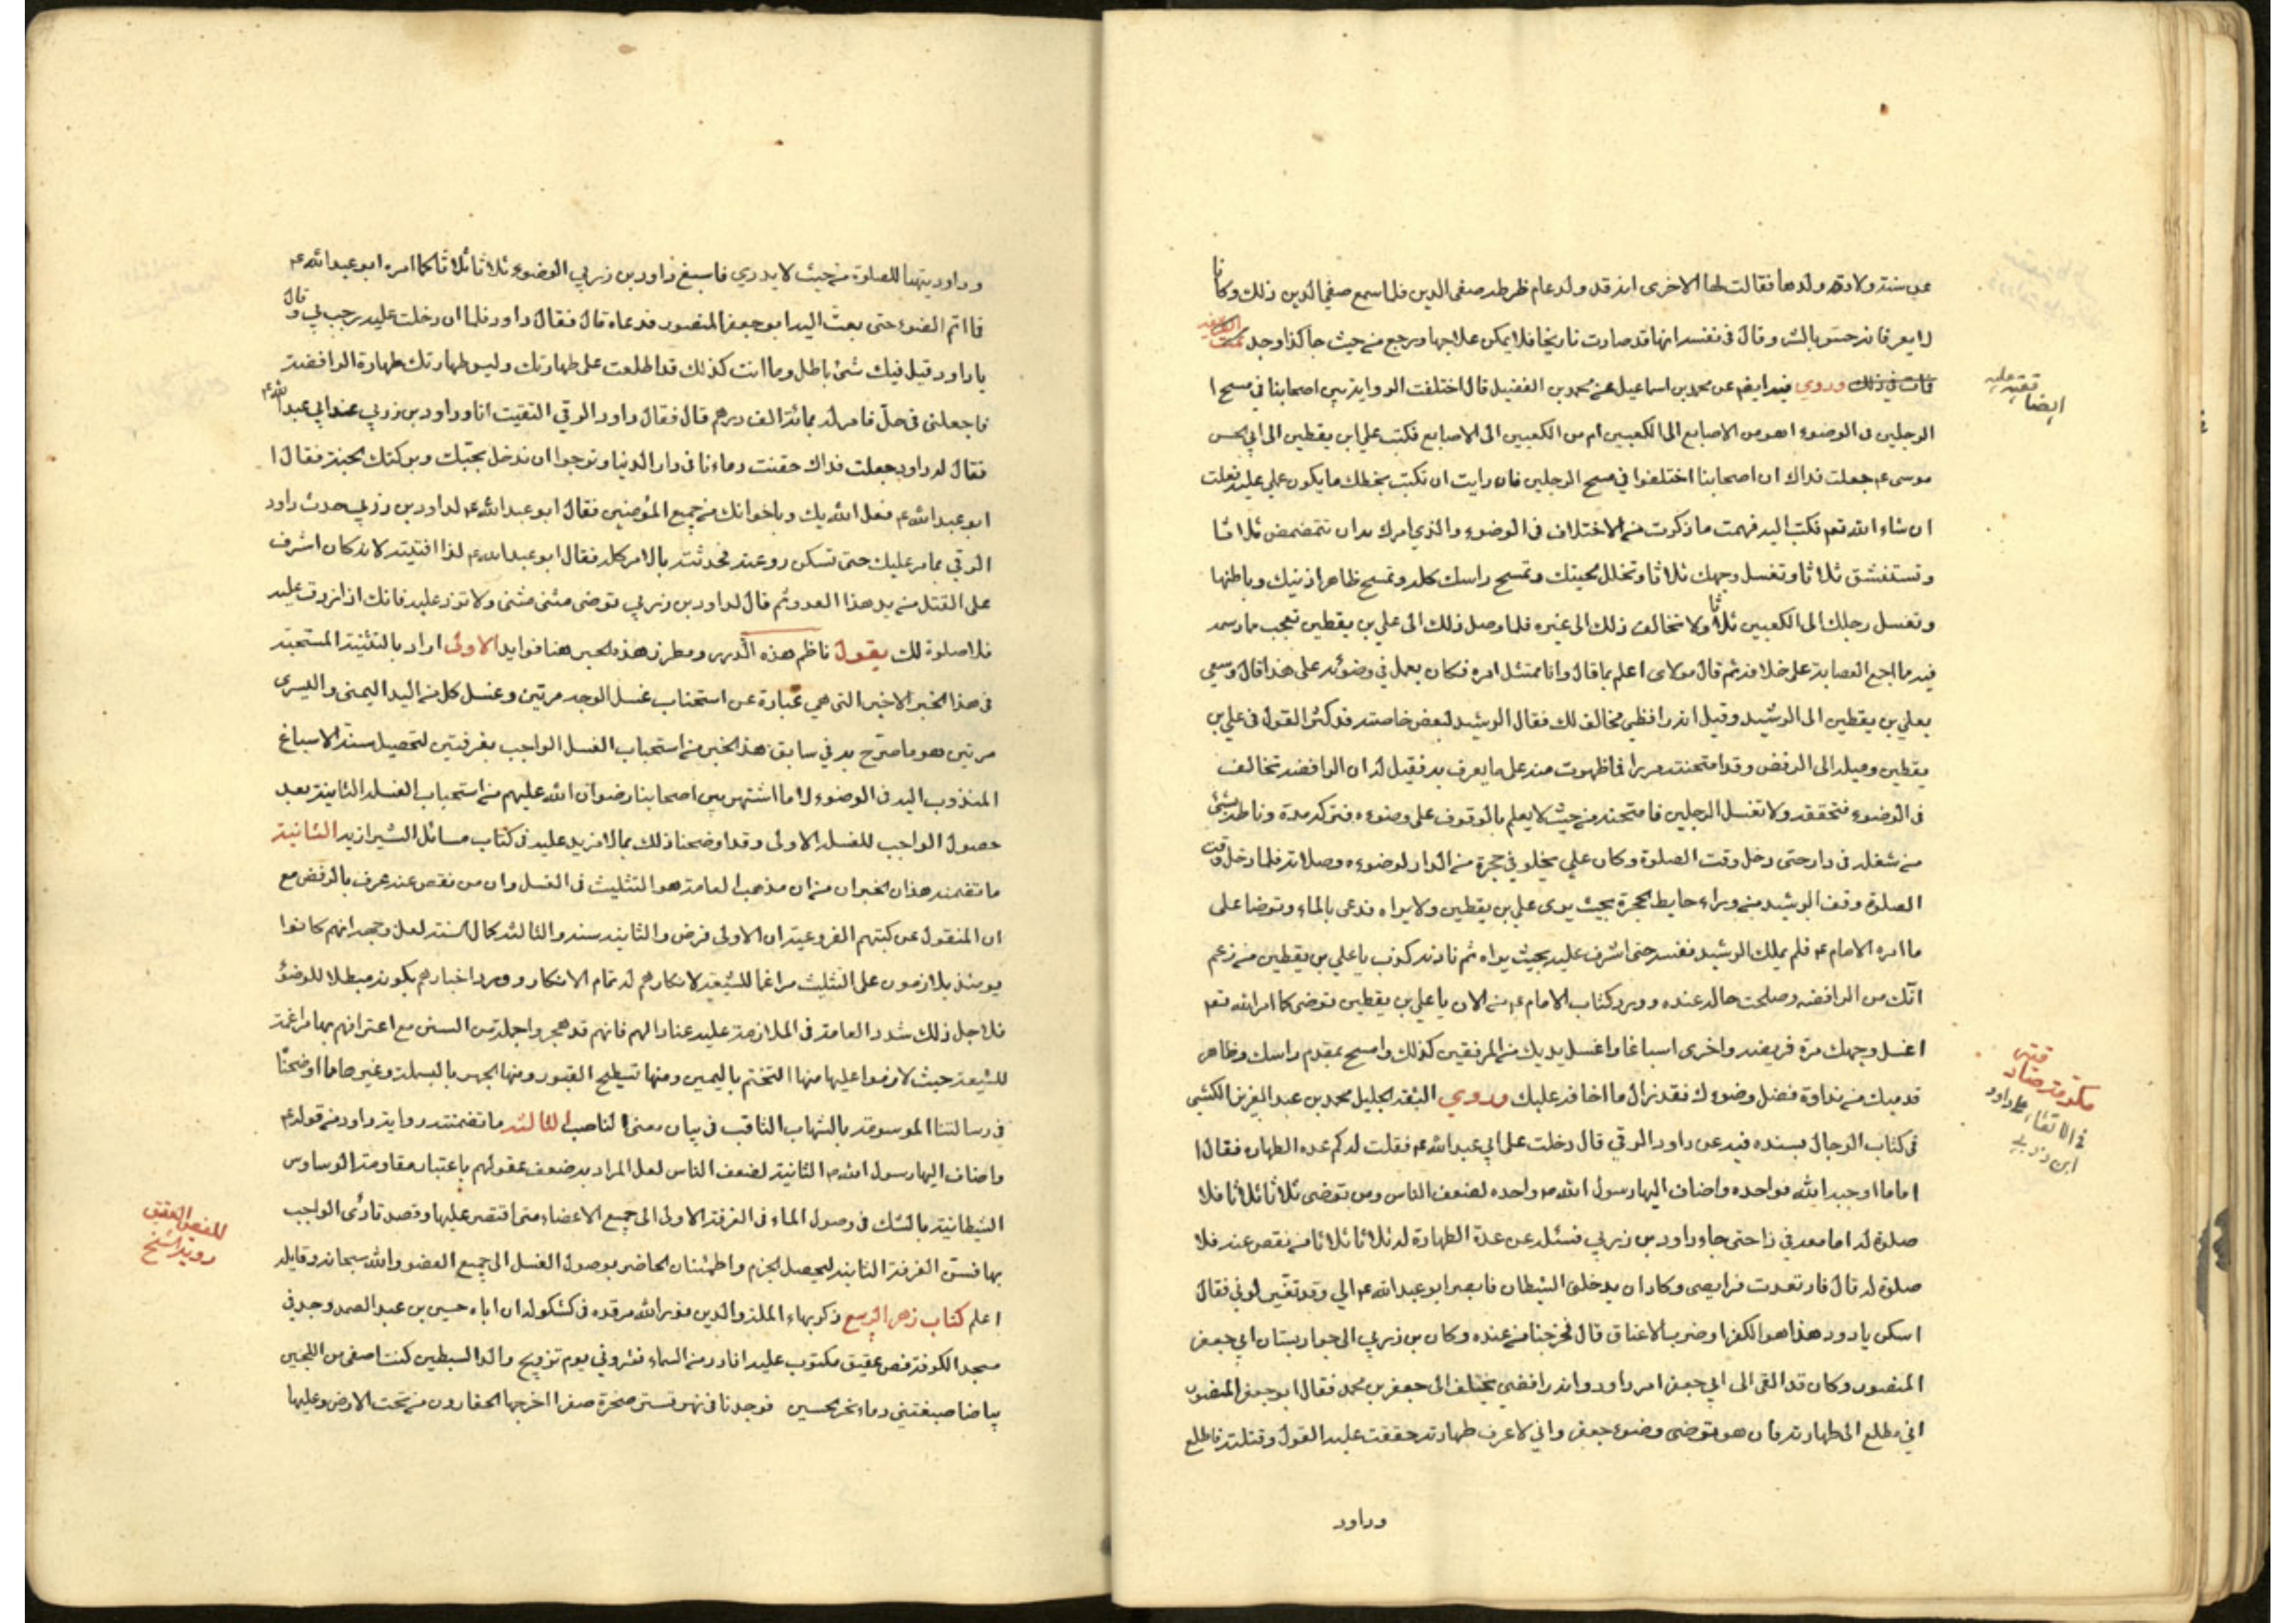 عن سنة ولادة ولدها فقالت لها الاخرى انه قد ولد عام ظرطه صفى الدين فلما سمع صفى الدين ذلك وكانا
لا يعرفانه حسّوا بالشر وقال فى نفسه انها قد صارت تاريخا فلا يمكن علاجها ورجع من حيث جاء كذا وجد
فات فى ذلك وروى فيه ايضم عن محمد بن اسماعيل عن محمد بن الفضيل قال اختلفت الرواية بين اصحابنا فى مسح ا
الرجلين فى الوضوء اهو من الاصابع الى الكعبين ام من الكعبين الى الاصابع فكتب على ابن يقطين الى ابى الحسن
موسى ع جعلت فداك ان اصحابنا اختلفوا فى مسح الرجلين فان رايت ان تكتب بخطك ما يكون عملى عليه فعلت
ان شاء الله تعم فكتب اليه فهمت ما ذكرت من الاختلاف فى الوضوء والذي امرك به ان تتمضمض ثلاثا
وتستنشق ثلاثا وتغسل وجهك ثلاثا وتخلل لحيتك وتمسح راسك كله وتمسح ظاهر اذنيك وباطنها
وتغسل رجلك الى الكعبين ثلاثا ولا تخالف ذلك الى غيره فلما وصل ذلك الى علي بن يقطين تعجب مما رسمه
فيه مما اجمع العصابة على خلافه ثم قال مولاى اعلم بما قال وانا ممتثل امره فكان يعمل فى وضوئه على هذا قال وسعى
بعلي بن يقطين الى الرشيد وقيل انه رافظى مخالف لك فقال الرشيد لبعض خاصته قد كثر القول فى علي بن
يقطين وميله الى الرفض وقد امتحنته مرارا فما ظهرت منه على ما يعرف به فقيل له ان الرافضه تخالف
فى الوضوء فتخففه ولا تغسل الرجلين فامتحنه من حيث لا يعلم بالوقوف على وضوءه فتركه مدة وناطه بشئ
من شغله فى دار حتى دخل وقت الصلوة وكان علي يخلو في حجرة من الدار لوضوءه وصلاته فلما دخل وقت
الصلوة وقف الرشيد من وراء حايط الحجرة بحيث يرى علي بن يقطين ولا يراه فدعى بالماء وتوضا على
ما امره الامام ع فلم يملك الرشيد نفسه حتى اشرف عليه بحيث يراه ثم ناداه كذب يا علي بن يقطين من زعم
انّك من الرافضه وصلحت حاله عنده وورد كتاب الامام ع من الان يا علي بن يقطين توضى كما امر الله تعم
اغسل وجهك مرّة فريضه واخرى اسباغا واغسل يديك من المرفقين كذلك وامسح بمقدم راسك وظاهر
قدميك من نداوة فضل وضوءك فقد زال ما اخاف عليك وروي الثقه الجليل محمد بن عبد العزيز الكشى
فى كتاب الرجال بسنده فيه عن داود الرقي قال دخلت على ابي عبد الله ع فقلت له كم عده الطهاره فقال ا
اما ما اوجبه الله فواحده واضاف اليها رسول الله ص واحده لضعف الناس ومن توضى ثلاثا ثلاثا فلا
صلوة له انا معه في ذا حتى جاء داود بن زربي فسئله عن عدة الطهارة له ثلاثا ثلاثا من نقص عنه فلا
صلوة له قال فارتعدت فرايصى وكاد ان يدخلنى الشيطان فابصر ابو عبد الله ع الي وقد تغيّر لونى فقال
اسكن يا دود هذا هو الكفر او ضرب الاعناق قال فخرجنا من عنده وكان بن زربي الى جوار بستان ابي جعفر
المنصور وكان قد القى الى ابي جعفر امر داود وانه رافضي يختلف الى جعفر بن محمد فقال ابو جعفر المنصور
اني مطلع الى طهارته فان هو توضى وضوء جعفر واني لاعرف طهارته حققت عليه القول وقتلته فاطلع
وداود
قضية عليه
ايضا
ابن زربي
وداود يتهيا للصلوة من حيث لا يدري فاسبغ داود بن زربي الوضوء ثلاثا ثلاثا كما امره ابو عبد الله ع
فما اتم الضوء حتى بعث اليه ابو جعفر المنصور فدعاه قال فقال داود فلما ان دخلت عليه رحب بي وقال
يا داود قيل فيك شئ باطل وما انت كذلك قد اطلعت على طهارتك وليس طهارتك طهارة الرافضة
فاجعلنى فى حلّ فامر له بمائة الف درهم قال فقال داود الرقي التقيت انا وداود بن زربي عند ابي عبد الله ع
فقال له داود جعلت فداك حقنت دماءنا فى دار الدنيا ونرجوا ان ندخل بحبّك وبركتك الجنة فقال ا
ابو عبد الله ع فعل الله بك وباخوانك من جميع المؤمنين فقال ابو عبد الله ع لداود بن زربي حدث داود
الرقي بما مر عليك حتى تسكن روعته فحدثته بالامر كله فقال ابو عبد الله ع لذا افتيته لانه كان اشرف
على القتل من يد هذا العدو ثم قال لداود بن زربي توضى مثنى مثنى ولا تزد عليه فانك اذا زدت عليه
فلا صلوة لك يقول ناظم هذه الدرر ومطرز هذه الحبر هنا فوايد الاولى اراد بالتثنية المستحبة
فى هذا الخبر الاخير التى هي عبارة عن استحباب غسل الوجه مرتين وغسل كل من اليد اليمنى واليسرى
مرتين هو ما صرّح به في سابق هذا الخبر من استحباب الغسل الواجب بغرفتين لتحصيل سنة الاسباغ
المندوب اليه فى الوضوء لا ما اشتهر بين اصحابنا رضوان الله عليهم من استحباب الغسله الثانية بعد
حصول الواجب للغسله الاولى وقد اوضحنا ذلك بما لا مزيد عليه فى كتاب مسائل الشيرازيه الثانية
ما تضمنه هذان الخبران من ان مذهب العامة هو التثليث فى الغسل وان من نقص عنه عرف بالرفض مع
ان المنقول عن كتبهم الفروعية ان الاولى فرض والثانيه سنه والثالثه كمال السنة لعل وجهه انهم كانوا
يومئذ يلازمون على التثليث مراغما للشيعة لانكارهم له تمام الانكار وورود اخبارهم بكونه مبطلا للوضؤ
فلاجل ذلك شدد العامة فى الملازمة عليه عنادا لهم فانهم قد هجروا جملة من السنن مع اعترافهم بها مراغمة
للشيعة حيث لازموا عليها منها التختم باليمين ومنها تسطيح القبور ومنها الجهر بالبسملة وغيرها مما اوضحنا
في رسالتنا الموسومة بالشهاب الثاقب فى بيان معنى الناصب الثالثه ما تضمنته رواية داود من قوله ع
واضاف اليها رسول الله ص الثانية لضعف الناس لعل المراد به ضعف عقولهم باعتبار مقاومة الوساوس
الشيطانية بالشك فى وصول الماء فى الغرفة الاولى الى جميع الاعضاء متى اقتصر عليها وقصد تادّى الواجب
بها فسنّ الغرفة الثانيه ليحصل الجزم واطمئنان الخاطر بوصول الغسل الى جميع العضو والله سبحانه وقايله
اعلم كتاب زهر الربيع ذكر بهاء الملة والدين نور الله مرقده فى كشكوله ان اباه حسين بن عبد الصمد وجد فى
مسجد الكوفة فص عقيق مكتوب عليه انا در من السماء نثرونى يوم تزويج والد السبطين كنت اصفى من اللجين
بياضا صبغتنى دماء نحر الحسين فوجدنا فى نهر تستر صخرة صفرا اخرجها الحفارون من تحت الارض وعليها
للفص العقيق